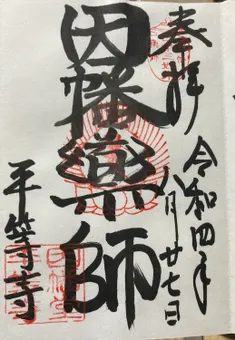 奉拝
令和四年
八月廿七日
因幡薬師
平等寺